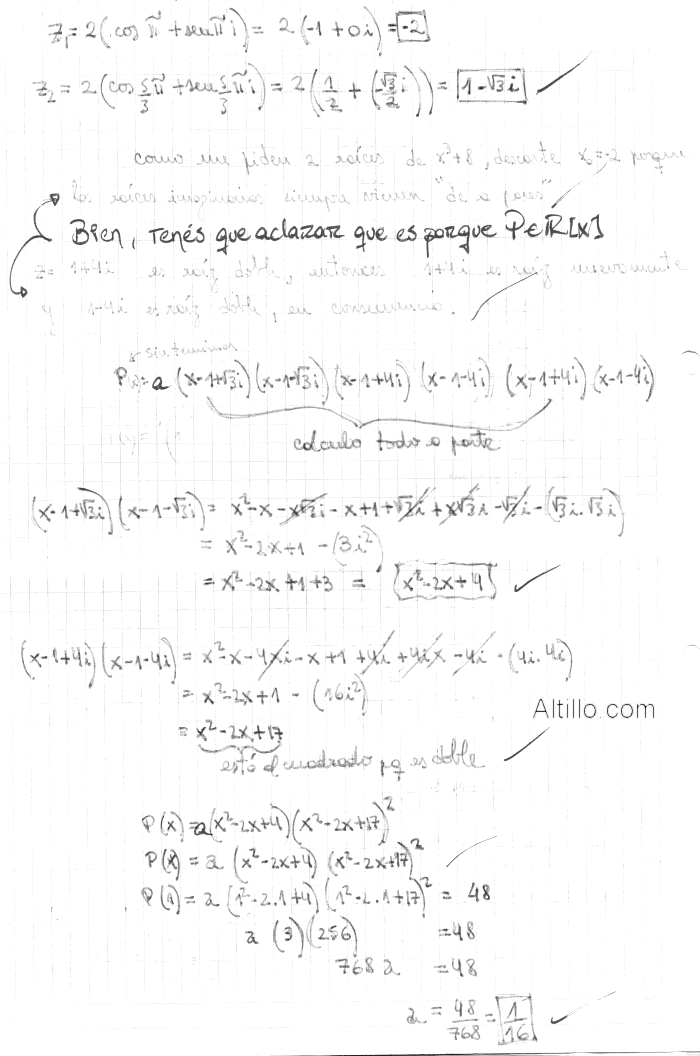 z₁ = 2(cos π + sen π i) = 2(-1 + 0i) = -2
z₂ = 2(cos 5/3 π + sen 5/3 π i) = 2(1/2 + (-√3/2 i)) = 1-√3i
como me piden 2 raíces de x³+8, descarte x₀=-2 porque
las raíces imaginarias siempre vienen "de a pares"
Bien, tenés que aclarar que es porque P∈ℝ[x]
z= 1+4i es raíz doble, entonces 1+4i es raíz nuevamente
y 1-4i es raíz doble, en consecuencia.
sin terminar
P(x)= a (x-1+√3i)(x-1-√3i)(x-1+4i)(x-1-4i)(x-1+4i)(x-1-4i)
calculo todo a parte
(x-1+√3i)(x-1-√3i) = x²-x-x√3i-x+1+√3i+x√3i-√3i-(√3i.√3i)
= x²-2x+1-(3i²)
= x²-2x+1+3 = x²-2x+4
(x-1+4i)(x-1-4i) = x²-x-4xi-x+1+4i+4ix-4i-(4i.4i)
= x²-2x+1-(16i²)
= x²-2x+17
Altillo.com
está al cuadrado pq es doble
P(x)=a(x²-2x+4)(x²-2x+17)²
P(x) = a (x²-2x+4) (x²-2x+17)²
P(1) = a (1²-2.1+4) (1²-2.1+17)² = 48
a (3)(256) =48
768 a =48
a = 48/768 = 1/16